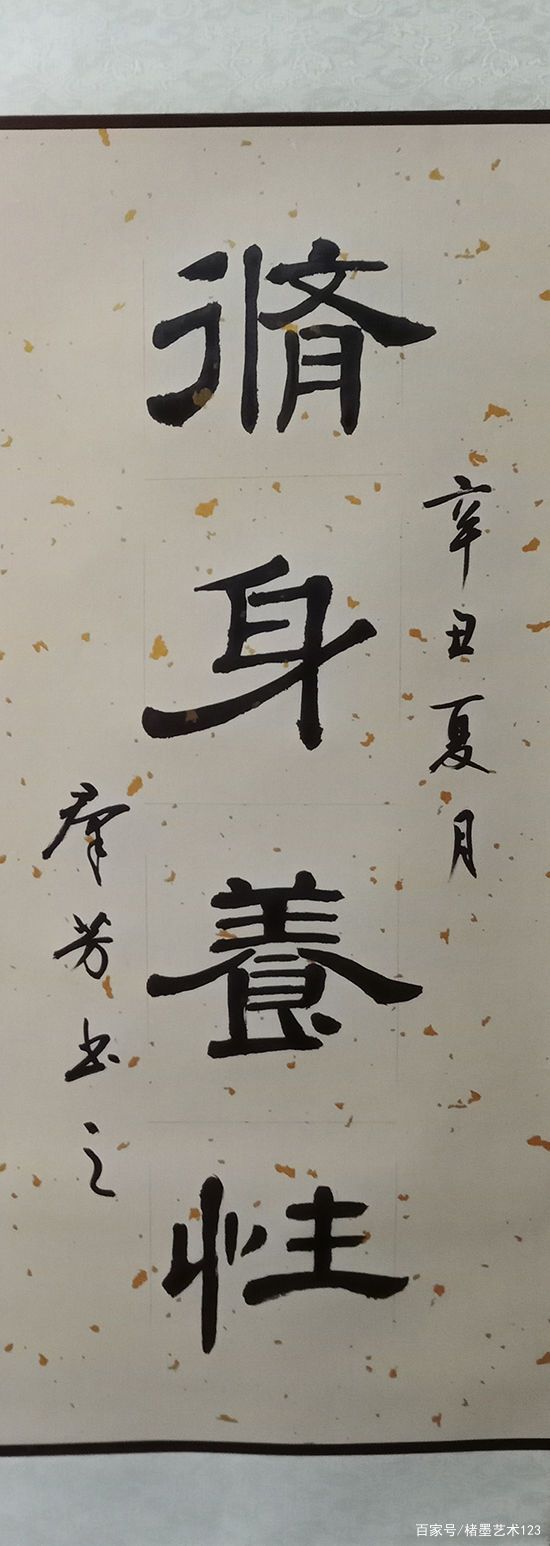 辛丑夏月
脩身養性
群芳书之
百家号/楮墨艺术123